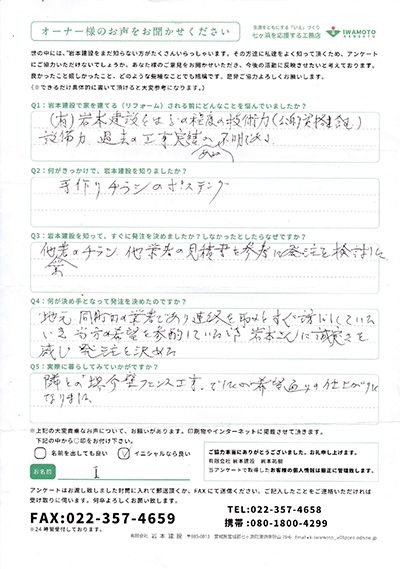 オーナー様のお声をお聞かせください
笑顔をともにする「いえ」づくり
七ヶ浜を応援する工務店
IWAMOTO
KENSETU
世の中には、"岩本建設をまだ知らない方がたくさんいらっしゃいます。その方達に私達をよく知って頂くため、アンケート
にご協力いただけないでしょうか。あなた様のご意見をお聞かせいただき、今後の活動に反映させたいと考えております。
良かったこと嬉しかったこと、どのような些細なことでも結構です。是非ご協力よろしくお願いします。
(※できるだけ具体的に書いて頂けると大変参考になります。)
Q1:岩本建設で家を建てる(リフォーム)される前にどんなことを悩んでいましたか?
(有)岩本建設とはどの程度の技術力(公的資格含む)
設備力 過去の工事実績が 不明である
Q2:何がきっかけで、岩本建設を知りましたか?
手作りチラシのポスティング
Q3:岩本建設を知って、すぐに発注を決めましたか?しなかったとしたらなぜですか?
他業者のチラシ、他業者の見積書を参考に発注を検討した
Q4:何が決め手となって発注を決めたのですか?
地元 同町内の業者であり連絡を取るとすぐ
当方の希望を 岩本さんに誠実さを
感じ 発注を決める
Q5:実際に暮らしてみていかがですか?
隣との境界壁フェンス工事。 希望通りの仕上がりに
なりました。
※上記の大変貴重なお声について、お願いがあります。印刷物やインターネットに掲載させて頂きます。
下記の中から○印をお付け下さい。
名前を出しても良い
イニシャルなら良い
お名前
I
ご協力本当にありがとうございました。お礼申し上げます。
有限会社 岩本建設 岩本祐樹
当アンケートで取得したお客様の個人情報は厳正に管理致します。
アンケートはお渡し致しました封筒に入れて郵送頂くか、FAXにて送信ください。ご記入したことをご連絡いただければ
受け取りに伺います。何卒よろしくお願い致します。
FAX:022-357-4659
※24時間受付しております。
TEL:022-357-4658
携帯:080-1800-4299
有限会社 岩本建設